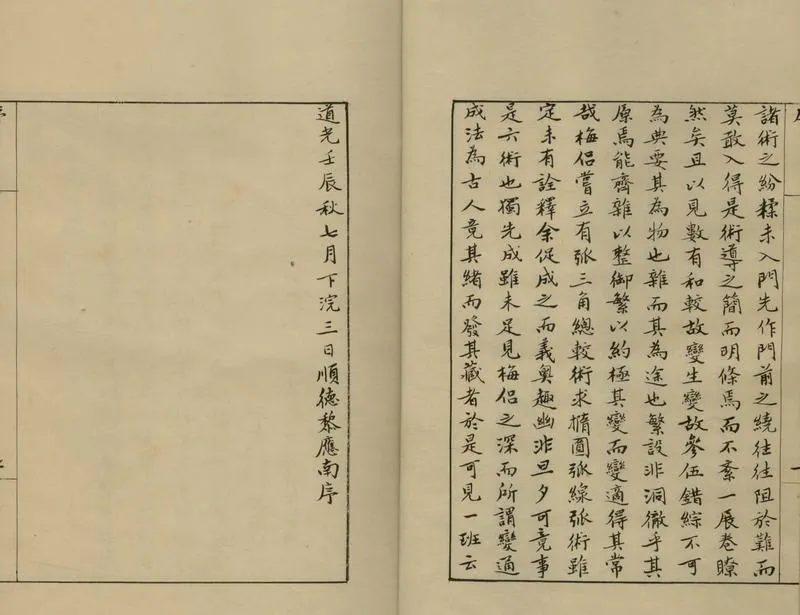 諸術之紛糅未入門先作門前之繞往往阻於難而
莫敢入得是術導之簡而明條焉而不紊一展卷瞭
然矣且以見數有和較故變生變故參伍錯綜不可
為典要其為物也雜而其為途也繁設非洞徹乎其
原焉能齊雜以整御繁以約極其變而變適得其常
哉梅侶嘗立有弧三角總較術求橢圓弧線弧術雖
定未有詮釋余促成之而義奧趣幽非旦夕可竟事
是六術也獨先成雖未足見梅侶之深而所謂變通
成法為古人竟其緒而發其藏者於是可見一班云
道光壬辰秋七月下浣三日順德黎應南序